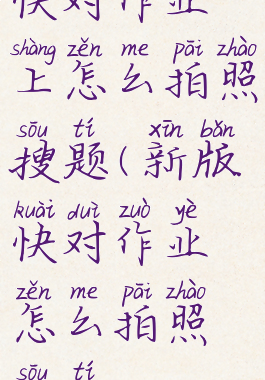 快对作业
shàng zěn me pāi zhào
上怎么拍照
sōu tí xīn bǎn
搜题(新版
kuài duì zuò yè
快对作业
zěn me pāi zhào
怎么拍照
sōu tí